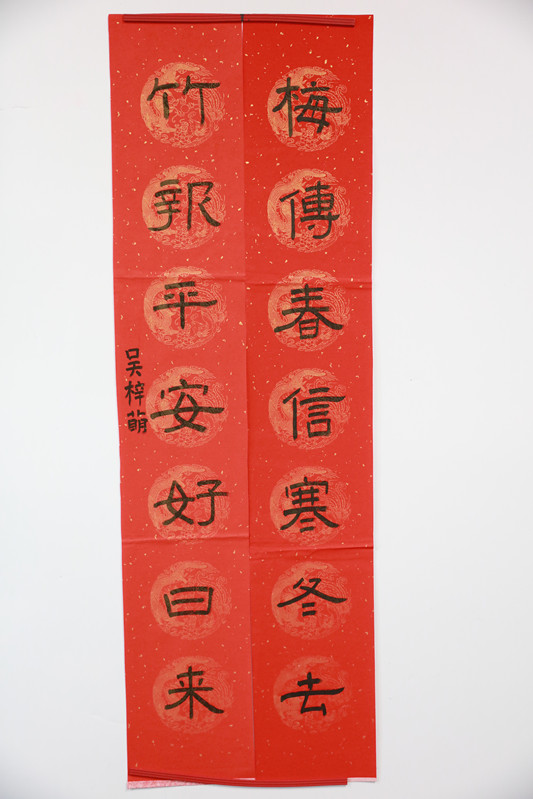 梅傳春信寒冬去
竹報平安好日来
吴梓萌